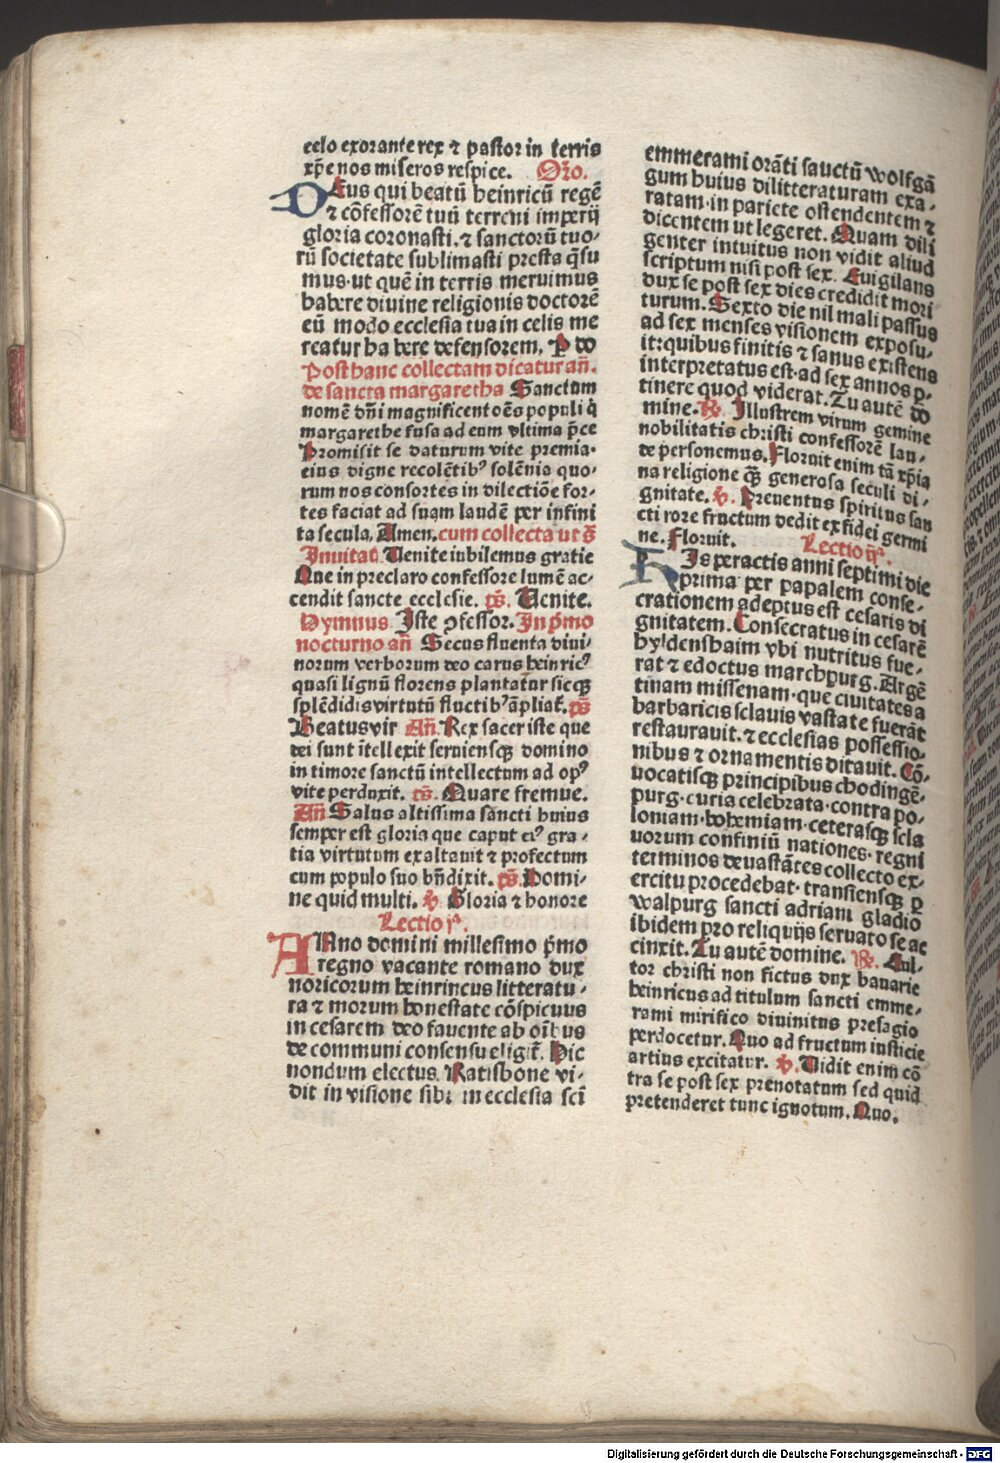 celo exorante rex ⁊ pastor in terris
xp̄e nos miseros respice. Or̄o.
DEus qui beatū heinricū regē
⁊ cōfessorē tuū terreni imperij
gloria coronasti. ⁊ sanctorū tuo-
rū societate sublimasti presta q̄su
mus. ut quē in terris meruimus
habere divine religionis doctorē
eū modo ecclesia tua in celis me
reatur habere defensorem. P do
Post hanc collectam dicatur an̄.
de sancta margaretha Sanctum
nomē dn̄i magnificent oēs populi q̄
margarethe fusa ad eum vltima p̄ce
Promisit se daturum vite premia.
eius digne recolētibꝰ solēnia quo-
rum nos consortes in dilectiōe for-
tes faciat ad suam laudē per infini
ta secula. Amen. cum collecta ut s̄
Inuitat̄ Uenite iubilemus gratie
Que in preclaro confessore lumē ac-
cendit sancte ecclesie. ps̄. Uenite.
Hymnus Iste ꝯfessor. In pͥmo
nocturno an̄ Secus fluenta diui-
norum verborum deo carus heinricꝰ
quasi lignū florens plantatur sicqꝫ
splēdidis virtutū fluctibꝰ āpliat̄. ps̄
Beatus vir An̄. Rex sacer iste que
dei sunt ītellexit seruiensqꝫ domino
in timore sanctū intellectum ad opꝰ
vite perduxit. ps̄. Quare fremue.
An̄ Salus altissima sancti huius
semper est gloria que caput eiꝰ gra-
tia virtutum exaltauit ⁊ profectum
cum populo suo bn̄dixit. ps̄. Domi-
ne quid multi. v̄ Gloria ⁊ honore
Lectio jª.
ANno domini millesimo pͥmo
regno vacante romano dux
noricorum heinrincus litteratu-
ra ⁊ morum honestate cōspicuus
in cesarem deo fauente ab oībus
de communi consensu eligit̄. Hic
nondum electus. Ratisbone vi-
dit in visione sibi in ecclesia sci
emmerami orāti sauctū wolfgā
gum huius dilitteraturam exa-
ratam. in pariete ostendentem ⁊
dicentem ut legeret. Quam dili
genter intuitus non vidit aliud
scriptum nisi post sex. Euigilans
dux se post sex dies credidit mori
turum. Sexto die nil mali passus
ad sex menses visionem exposu-
it: quibus finitis ⁊ sanus existens
interpretatus est. ad sex annos p-
tinere quod viderat. Tu autē do
mine. R̄. Illustrem virum gemine
nobilitatis christi confessorē lau-
de personemus. Floruit enim tā xp̄ia
na religione qꝫ generosa seculi di-
gnitate. v̄. Preuentus spiritus san
cti rore fructum dedit ex fidei germi
ne. Floruit. Lectio ijª.
HIs peractis anni septimi die
prima per papalem conse-
crationem adeptus est cesaris di
gnitatem. Consecratus in cesarē
hyldenshaim vbi nutritus fue-
rat ⁊ edoctus marchpurg. Argē
tinam missenam. que ciuitates a
barbaricis sclauis vastate fuerāt
restaurauit. ⁊ ecclesias possessio-
nibus ⁊ ornamentis ditauit. Cō-
uocatisqꝫ principibus chodingē-
purg. curia celebrata. contra po-
loniam. bohemiam. ceterasqꝫ scla
uorum confiniū nationes. regni
terminos deuastātes collecto ex-
ercitu procedebat. transiensqꝫ p
walpurg sancti adriani gladio
ibidem pro reliquijs seruato se ac
cinxit. Tu autē domine. R̄. Cul-
tor christi non fictus dux bauarie
heinricus ad titulum sancti emme-
rami mirifico diuinitus presagio
perdocetur. Quo ad fructum iusticie
artius excitatur. v̄. Uidit enim cō
tra se post sex prenotatum sed quid
pretenderet tunc ignotum. Quo.
Digitalisierung gefördert durch die Deutsche Forschungsgemeinschaft - DFG